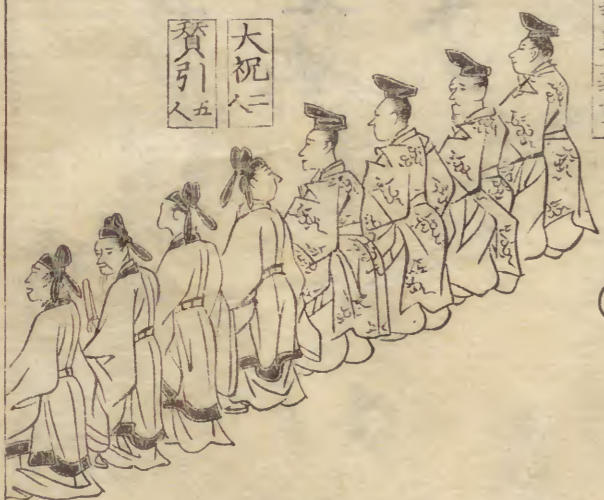 大祝二人
賛引五人